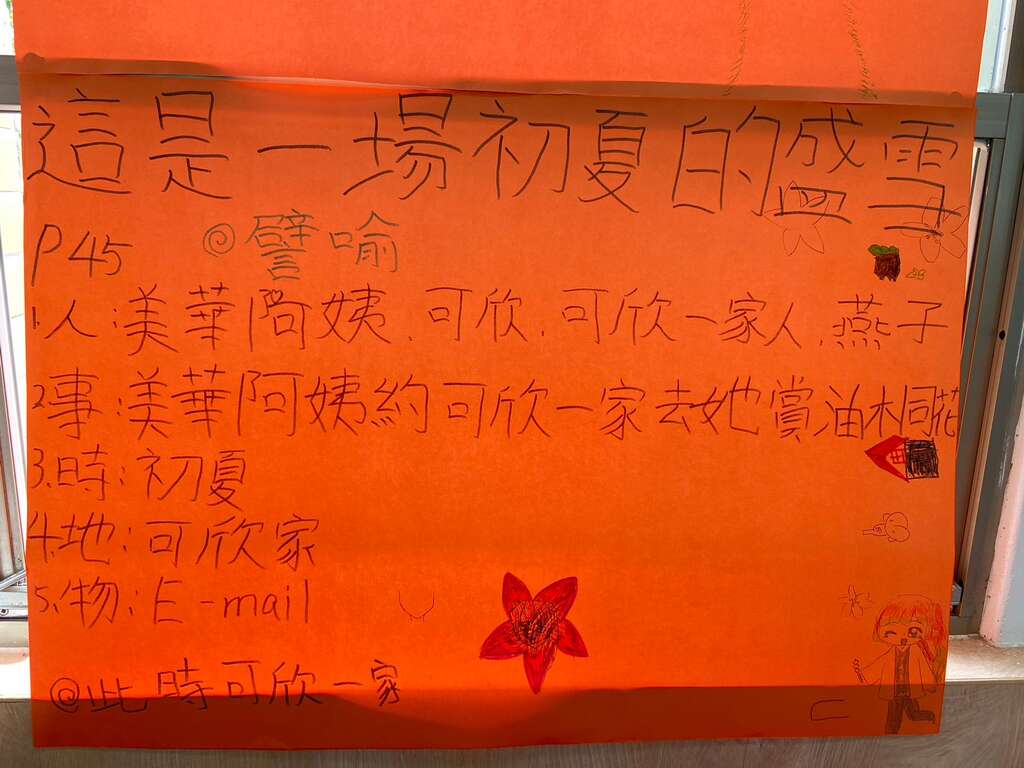 這是一場初夏的盛雪
P45 @譬喻
1.人:美華阿姨、可欣、可欣一家人、燕子
2.事:美華阿姨約可欣一家去她賞油桐花
3.時:初夏
4.地:可欣家
5.物:E-mail
@此時可欣一家